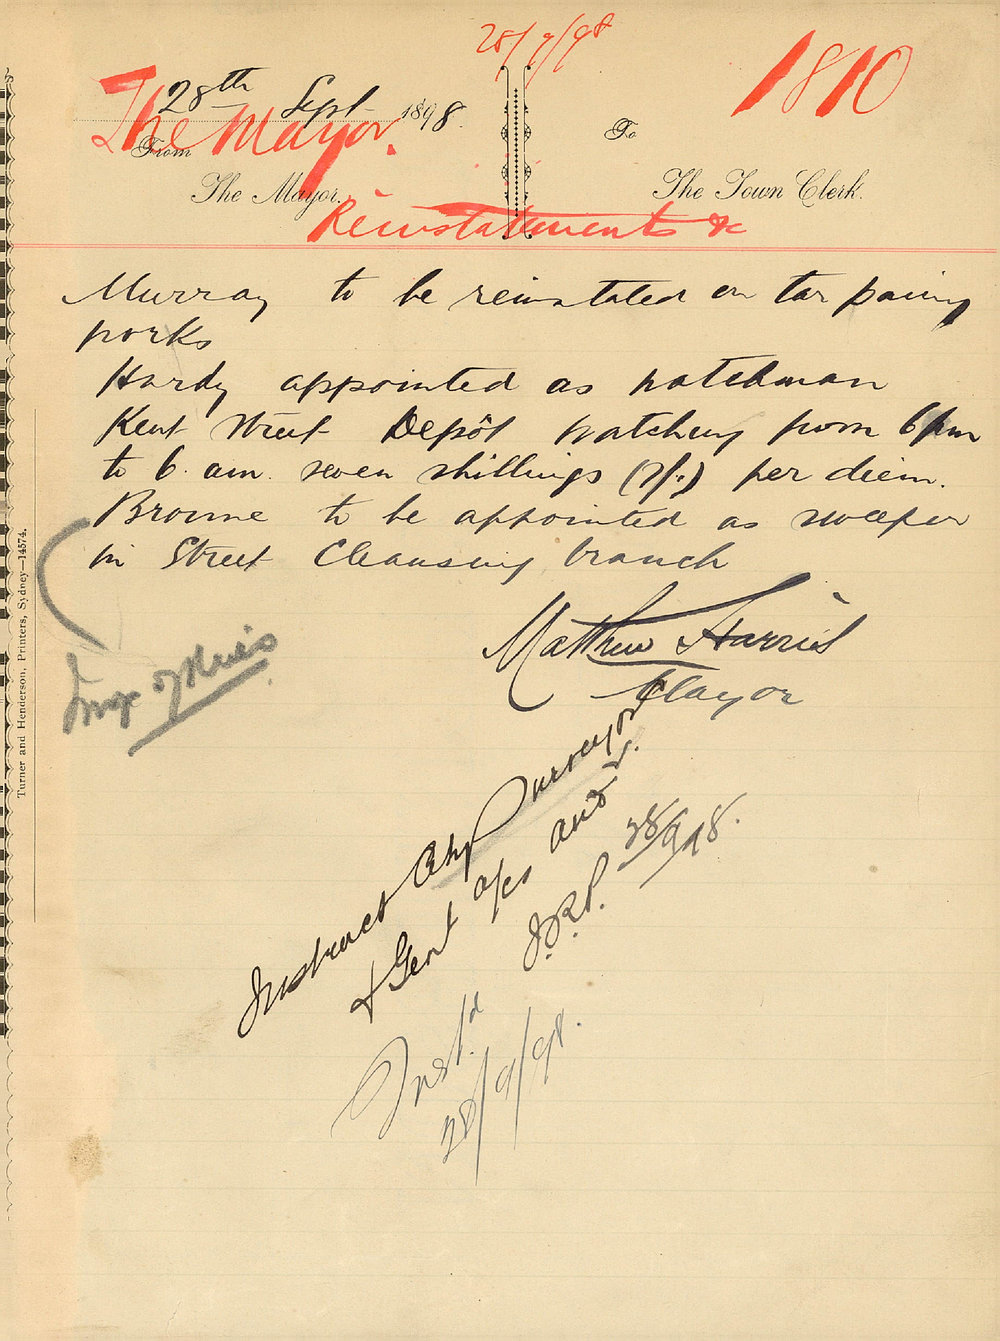 28/9/98
1810
28th Sept 1898
The Mayor.
From
To
The Mayor.
The Town Clerk.
Reinstatements &c
Murray to be reinstated on tar paving
works
Hardy appointed as watchman
Kent Street Depôt watching from 6 pm
to 6. am. seven shillings (7/.) per diem.
Browne to be appointed as sweeper
in Street Cleansing branch
Matthew Harris
Mayor
Instruct City Surveyor
& Gent of
J.R.P. 28/9/98.
Inst'd
28/9/98.
Turner and Henderson, Printers, Sydney—14574.